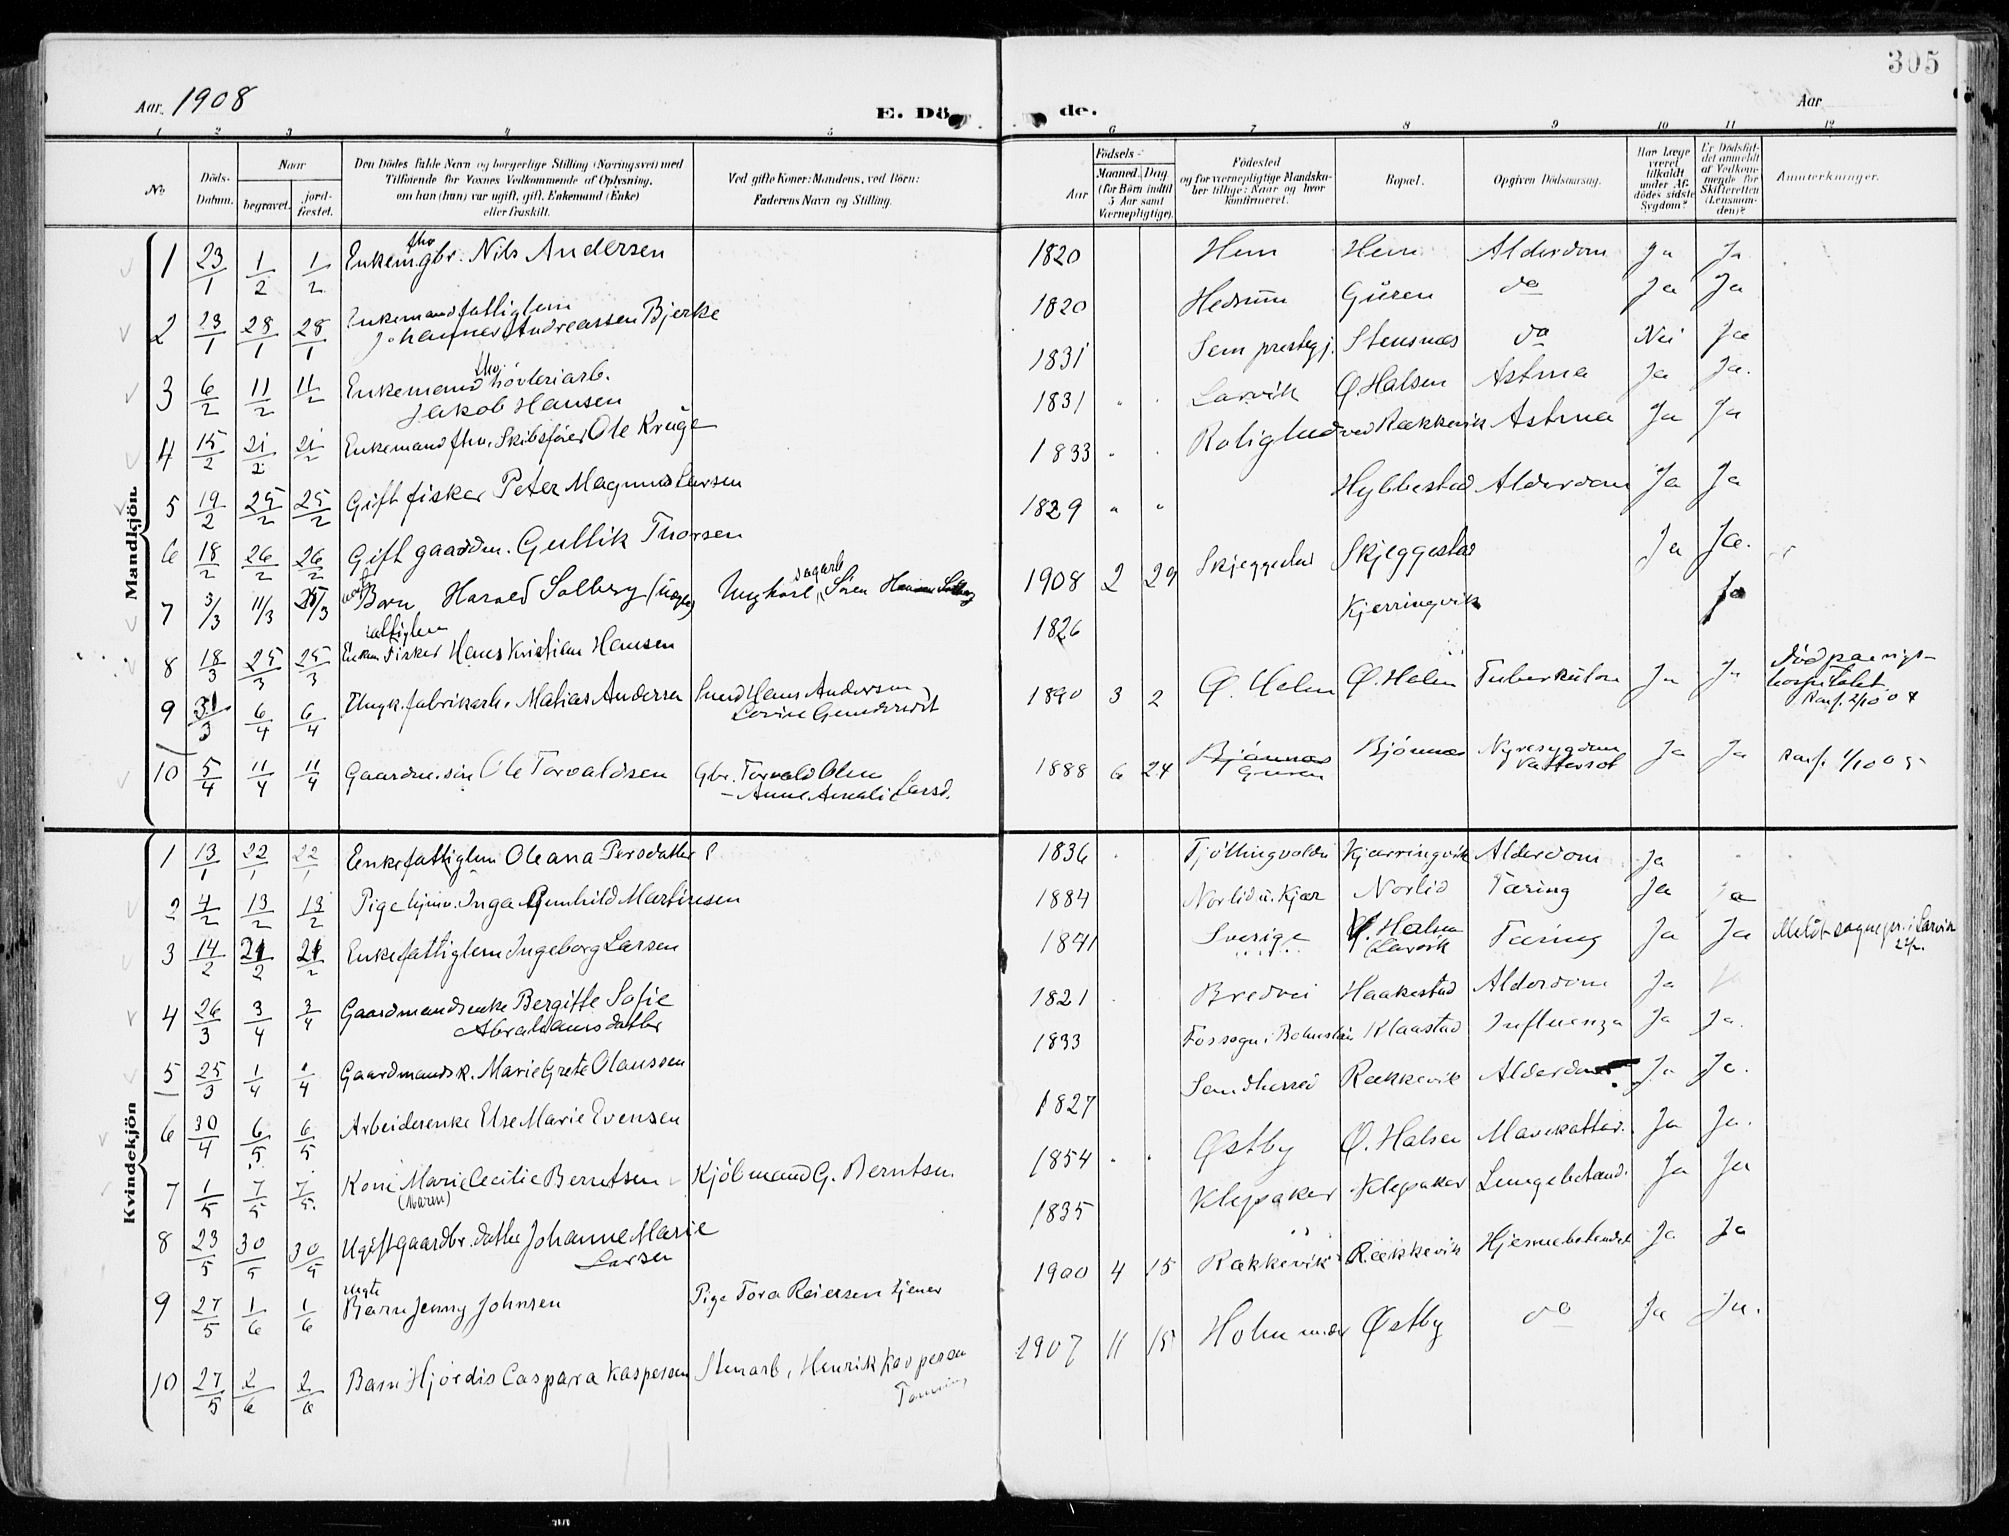 305
Aar 1908
E. Dö
de.
Aar
1 2 3 4 5 6 7 8 9 10 11 12
No
Döds-Datum.
Naar
begravet.
jord-fæstet.
Den Dödes fulde Navn og borgerlige Stilling (Næringsvei) med
Tilföiende for Voxnes Vedkommende af Oplysning,
om han (hun) var ugift, gift, Enkemand (Enke)
eller fraskilt.
Ved gifte Koner: Mandens, ved Börn:
Faderens Navn og Stilling.
Födsels-
Aar
Maaned. Dag
(for Börn indtil
5 Aar samt
Værnepligtige).
Födested
og for værnepligtige Mandska-
ber tillige: Naar og hvor
konfirmeret.
Bopæl.
Opgiven Dödsaarsag.
Har Læge
været
tilkaldt
under Af-
dödes sidste
Sygdom?
Er Dödsfal-
det anmeldt
af Vedkom-
mende for
Skifteretten
(Lensman-
den)?
Anmærkninger.
Mandkjön.
1 23/1 1/2 1/2 Enkem. fhv gbr. Nils Andersen 1820 Hem Hem Alderdom Ja Ja
2 23/1 28/1 28/1 Enkemand fattiglem
Johannes Andreassen Bjerke 1820 Hedrum Guren do Ja Ja
3 6/2 11/2 11/2 Enkemand fhv. høvleriarb.
Jakob Hansen 1831 Sem prestegj. Stensnæs do Nei Ja
4 15/2 21/2 21/2 Enkemand fhv. Skibsfører Ole Krüge 1831 Larvik Ø. Halsen Astma Ja Ja.
5 19/2 25/2 25/2 Gift fisker Peter Magnus Larsen 1833 Rolighed ved Rækkevik Astma Ja Ja
6 18/2 26/2 26/2 Gift gaardm. Gullik Thorsen 1829 Hybbestad Alderdom Ja Ja
7 3/3 11/3 /3 Barn Harald Solberg (uægte) Ungkarl sagarb Søren 1908 2 29 Skjeggestad Skjeggestad Ja Ja.
8 18/3 25/3 25/3 fattiglem
Enkem Fisker Hans Kristian Hansen 1826 Kjerringvik Ja
9 31/3 6/4 6/4 Ungk. fabrikarb. Matias Andersen Smed Hans Andersen
1890 3 2 Ø. Halsen Ø. Halsen Tuberkulose Ja Ja Død paa
hospitalet
Konf. 2/10 04
10 5/4 11/4 11/4 Gaardm. søn Ole Torvaldsen Gbr. Torvald Olsen
– Anne Amalie Larsd. 1888 6 24 Bjønnæs
Guren Bjønnæs Nyresygdom
Vattersot Ja Ja Konf. 1/10 05
Kvindekjön
1 13/1 22/1 22/1 Enke fattiglem Oleana Persdatter 1836 Tjøllingvolden Kjærringvik Alderdom Ja
2 4/2 13/2 13/2 Pige hjmv. Inga Gunhild Martinsen 1884 Norlid u. Kjær Norlid Tæring Ja Ja
3 14/2 21/2 21/2 Enke fattiglem Ingeborg Larsen 1841 Sverige Ø. Halsen
(Larvik Tæring Ja Ja Meldt sognepr. i Larvik
22/2.
4 26/3 3/4 3/4 Gaardmandsenke Bergitte Sofie
Abrahamsdatter 1821 Bredvei Haakestad Alderdom Ja
5 25/3 1/4 1/4 Gaardmandsk. Marie Grete Olaussen 1833 Fossogn i Bohuslän Klaastad Influenza Ja Ja.
6 30/4 6/5 6/5 Arbeiderenke Else Marie Evensen 1827 Sandherred Rækkevik Alderdom Ja Ja.
7 1/5 7/5 7/5 Kone Marie Cecilie Berntsen Kjøbmand G. Berntsen
(Maren) 1854 Østby Ø. Halsen Mavekattar. Ja Ja.
8 23/5 30/5 30/5 Ugift gaardbr. datter Johanne Marie
Larsen 1835 Klepaker Klepaker Lungebetænd. Ja Ja
9 27/5 1/6 1/6 uægte
Barn Jenny Johnsen Pige Tora Reiersen tjener 1900 4 15 Rækkevik Rækkevik Hjernebetændel. Ja Ja
10 27/5 2/6 2/6 Barn Hjørdis Caspara Kaspersen Stenarb. Henrik Kaspersen
1907 11 15 Holm under Østby do Ja Ja.